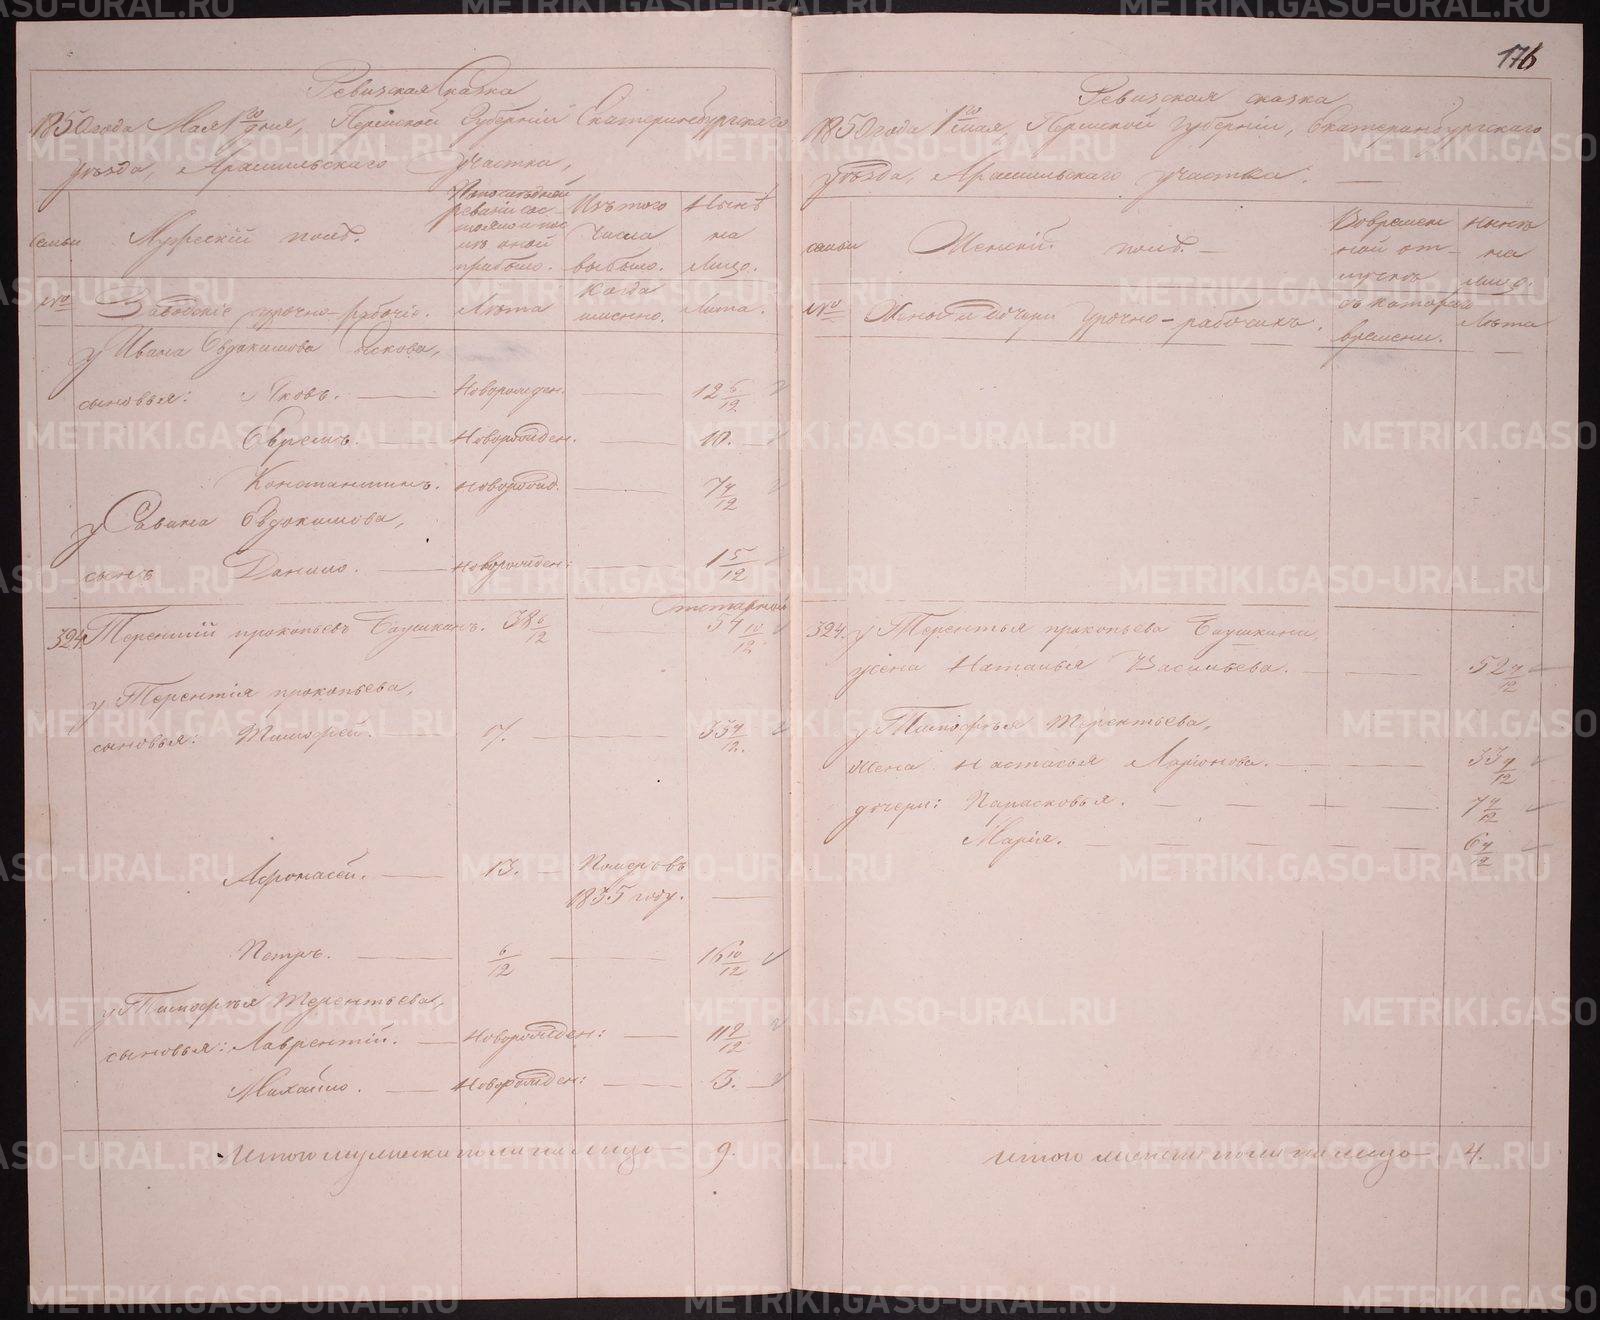 176
Ревизская Сказка
1850 года Мая 1го дня, Пермской Губернии Екатеринбургского
уѣзда, Арамильскаго Участка,
семьи
Мужескій полъ.
По последней ревизіи состояло и после оной прибыло.
Изъ того числа выбыло.
Нынѣ на лицо.
№
Заводскіе урочно-рабочіе.
Лѣта
Когда именно.
Лѣта.
у Ивана Овдокимова
сыновья: Яковъ. — Новорожден. — 12 6/12
Ефремъ. — Новорожден. — 10.
Константинъ. Новорожд. — 7 4/12
у Савина Овдокимова,
сынъ Данило. — Новорожден: — 1 5/12
324. Терентій прокопьевъ Баушкинъ. 38 6/12 — 54 10/12
у Терентія прокопьева,
сыновья: Тимофей. 17. — 33 4/12.
Афонасей. — 13. — Померъ въ
1835 году. —
Петръ. — 6/12 — 16 10/12
у Тимофѣя Терентьева,
сыновья: Лаврентій. — Новорожден: — 11 2/12
Михайло. — Новорожден: — 3.
Итого мужеска пола на лицо 9.
Ревизская сказка
1850 года 1го мая, Пермской Губерніи, Екатеринбургскаго
уѣзда, Арамильскаго участка. —
семьи
Женскій полъ. —
Во временной отлучкѣ
Нынѣ на лицо.
№
Жены и дочери Урочно-рабочихъ.
съ котораго времени.
Лѣта
324. у Терентья прокопьева Баушкина,
жена Наталья Васильева. — 52 4/12
у Тимофѣя Терентьева,
жена Настасья Ларіонова. — 33 4/12
дочери: Парасковья. — 7 4/12
Марія. — 6 4/12
Итого женска пола на лицо 4.
METRIKI.GASO-URAL.RU